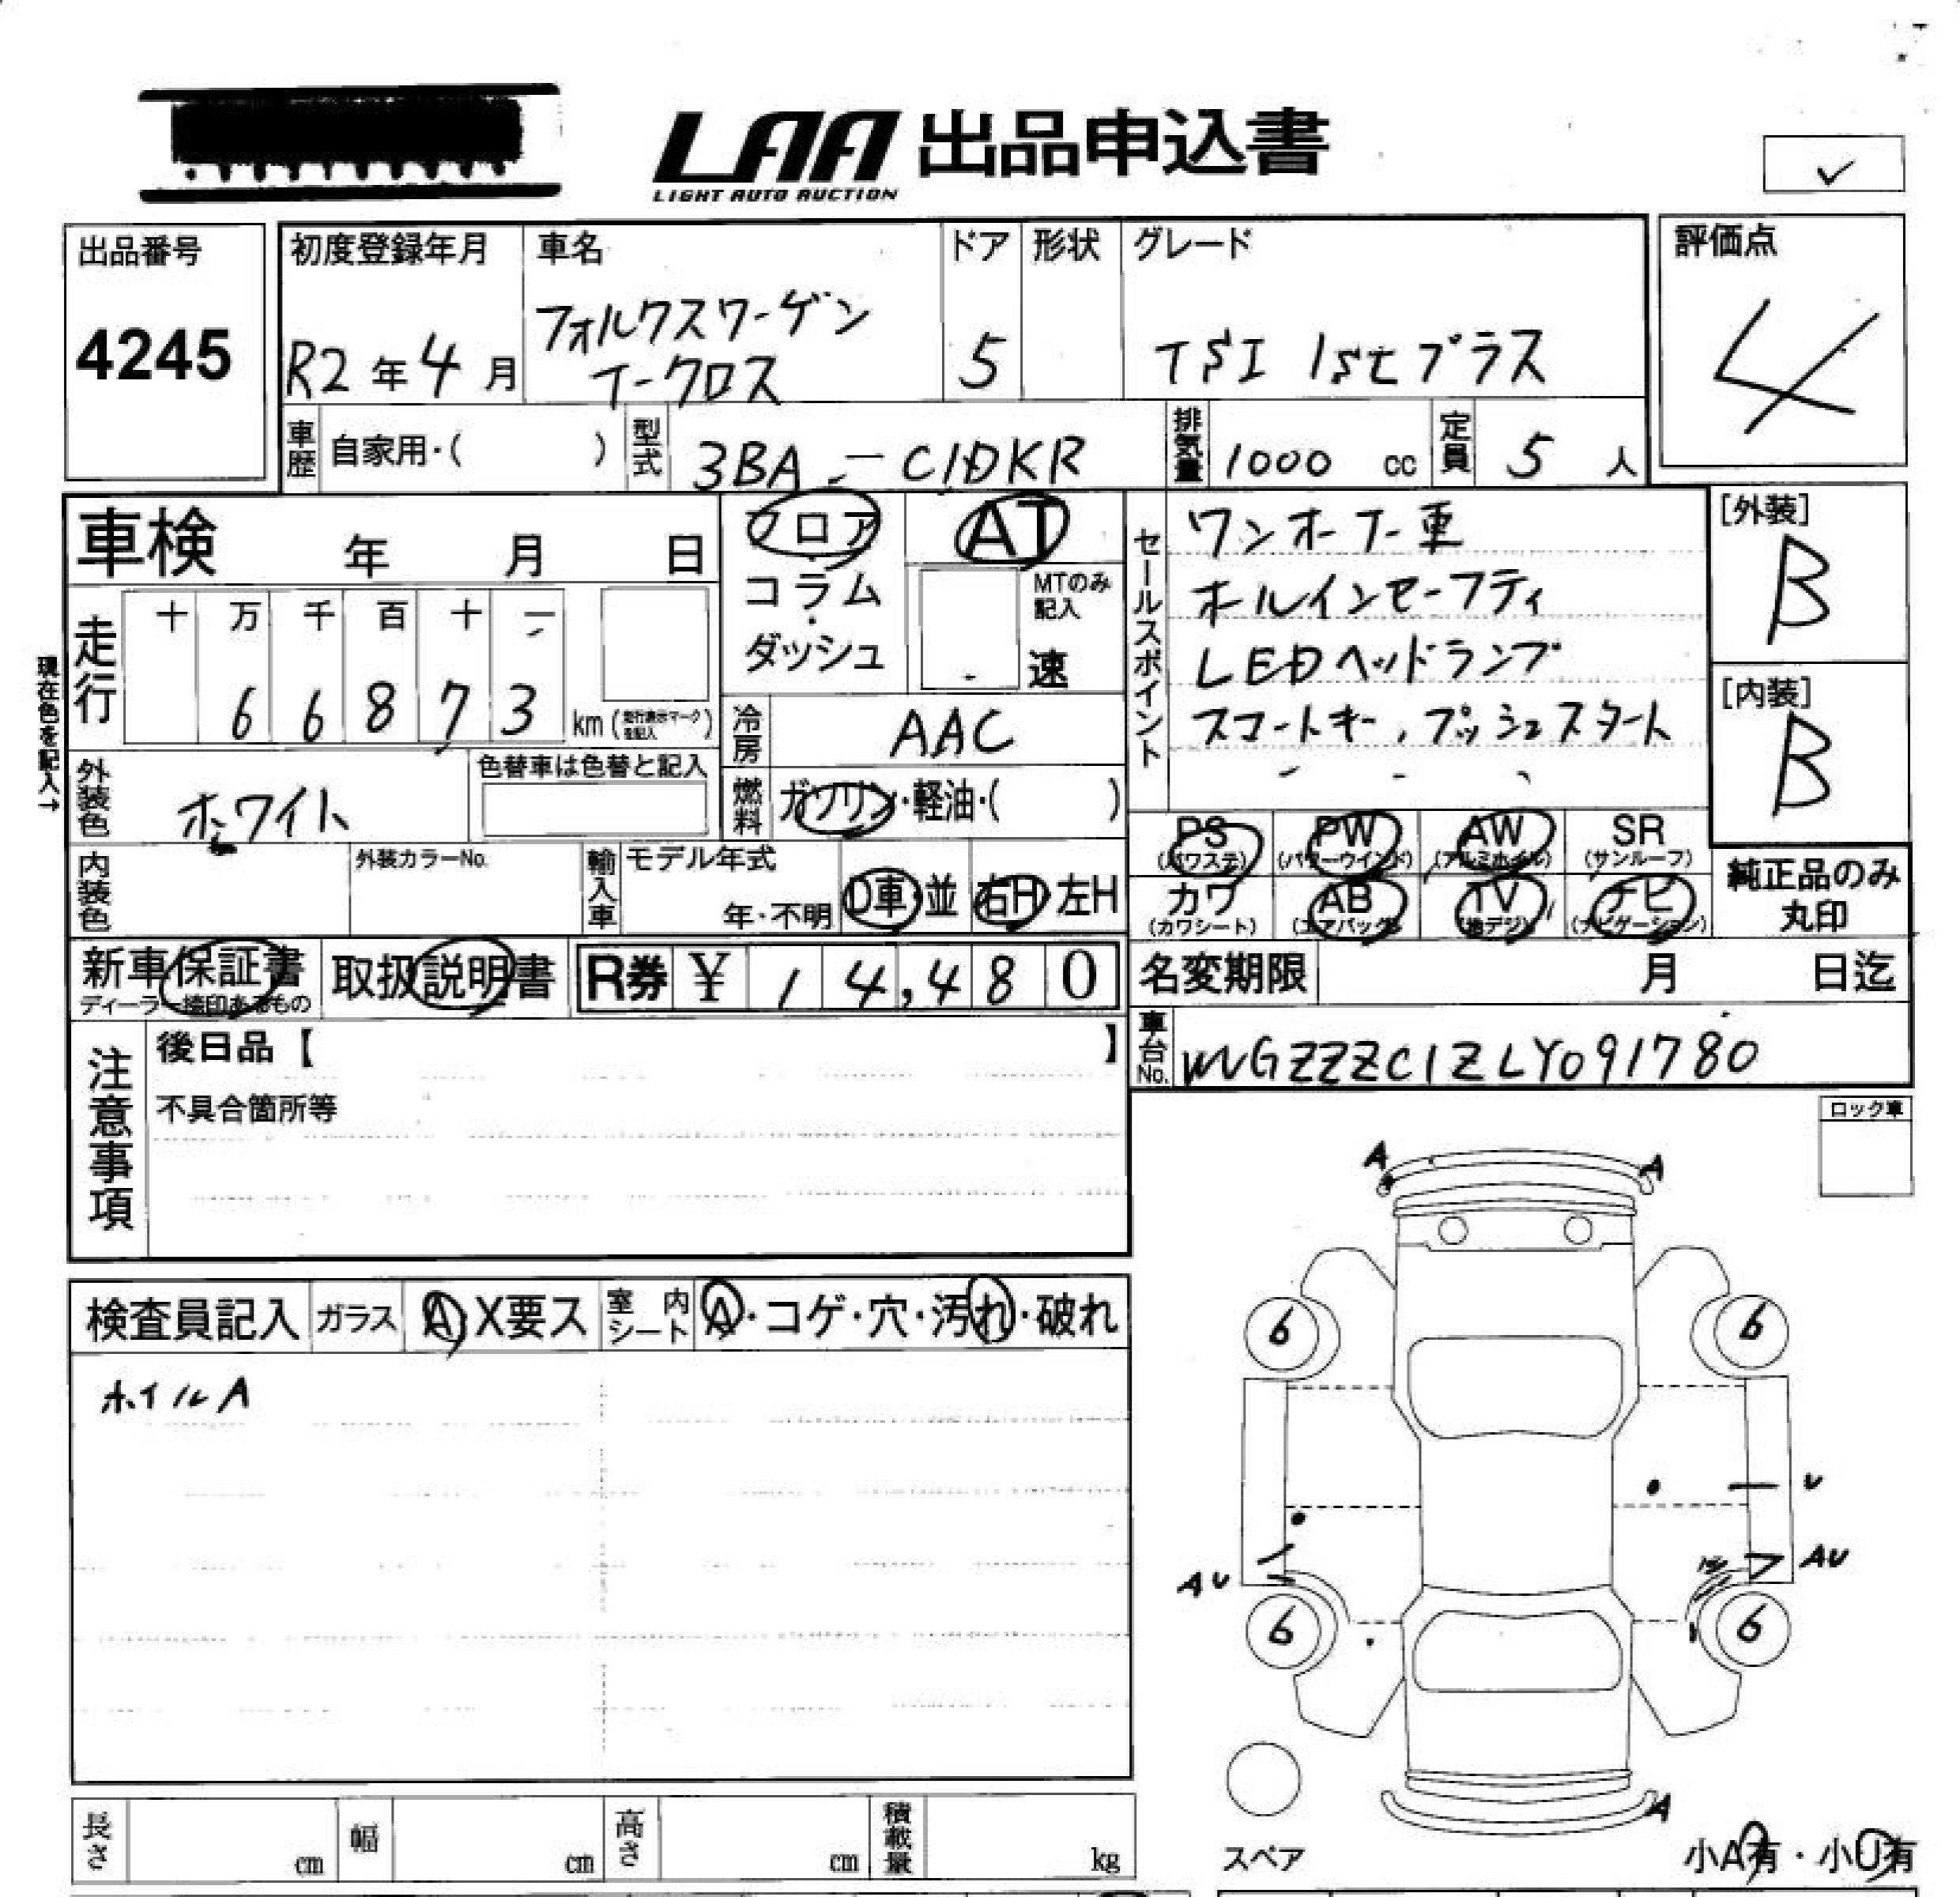 LAA 出品申込書
LIGHT AUTO AUCTION
✓
出品番号
4245
初度登録年月
R2年4月
車名
フォルクスワーゲン
T-クロス
ドア
5
形状
グレード
TSI 1stプラス
評価点
4
車歴 自家用・( )
型式 3BA-C1DKR
排気量 1000 cc
定員 5 人
車検 年 月 日
フロア
コラム
ダッシュ
AT
MTのみ
記入
速
セールスポイント
ワンオーナー車
ホイルインセーフティ
LEDヘッドランプ
スマートキー、プッシュスタート
[外装]
B
[内装]
B
現在色を記入→
走行
十 万 千 百 十 一
6 6 8 7 3 km (走行表示マークを記入)
冷房 AAC
外装色 ホワイト
色替車は色替と記入
燃料 ガソリン・軽油・( )
PS (パワステ)
PW (パワーウインド)
AW (アルミホイル)
SR (サンルーフ)
カワ (カワシート)
AB (エアバック)
TV (地デジ)
ナビ (ナビゲーション)
純正品のみ
丸印
内装色
外装カラーNo.
輸入車
モデル年式
年・不明
D車・並
右H・左H
新車保証書
ディーラー捺印あるもの
取扱説明書
R券 ¥ 14,480
名変期限 月 日迄
車台No. WVGZZZC1ZLY091780
注意事項
後日品【 】
不具合箇所等
ロック車
検査員記入
ガラス A・X要ス
室内シート A・コゲ・穴・汚れ・破れ
ホイルA
A A
6 6
U
AU AU
6 6
A
スペア
小A有・小U有
長さ cm
幅 cm
高さ cm
積載量 kg